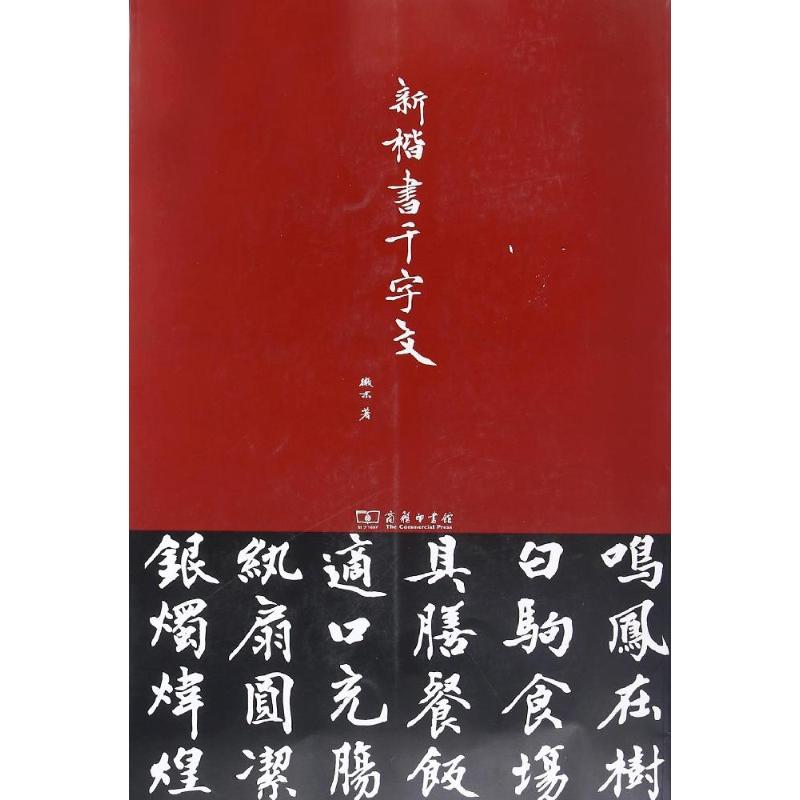 新楷書千字文
著
商務印書館
The Commercial Press
鳴鳳在樹
白駒食塲
具膳餐飯
適口充膓
紈扇圓潔
銀燭煒煌